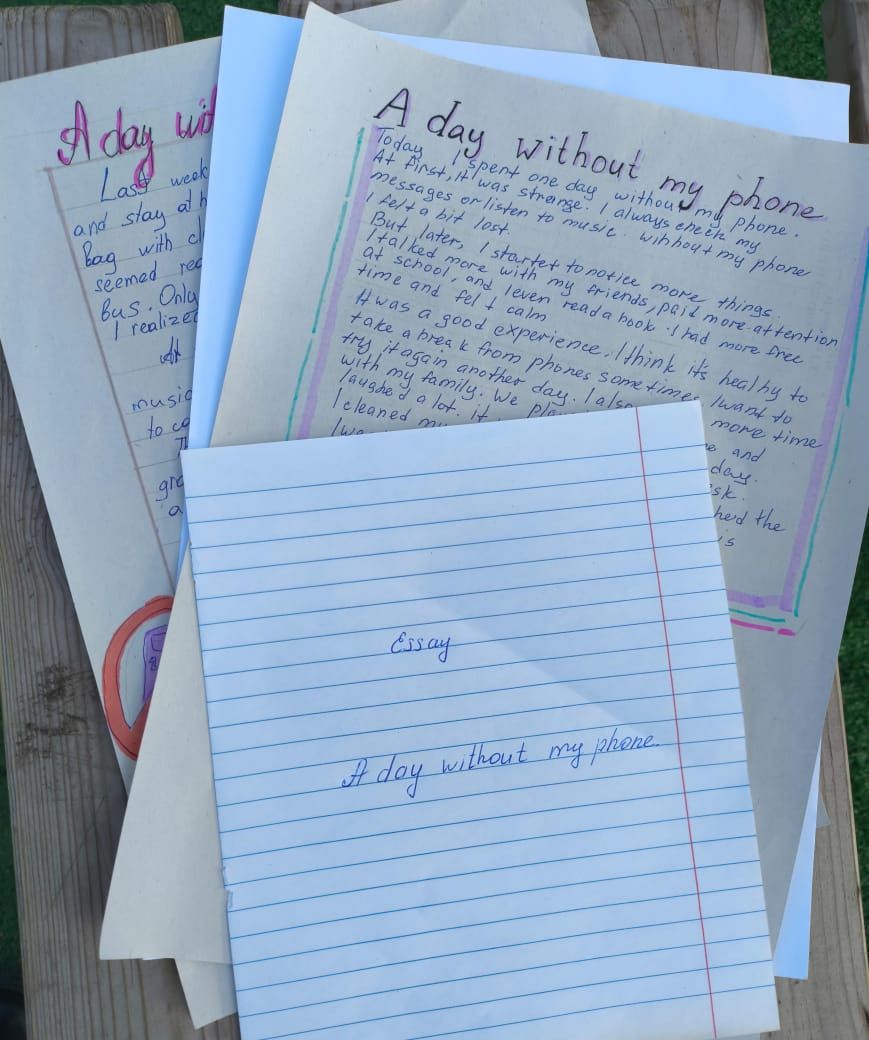 A day
Last week
and stay at h
bag with cl
seemed rea
bus. Only
I realized
music
to co
gre
a
A day without my phone
Today I spent one day without my phone.
At first, it was strange. I always check my
messages or listen to music. wihhout my phone
I felt a bit lost.
But later, I startet to notice more things.
I talked more with my friends, paid more attention
at school, and leven read a book. I had more free
time and fel t calm
It was a good experience. I think it's healhy to
take a break from phones sometimes. I want to
try it again another day. I also more time
with my family. We play and
laughed a lot. it day.
I cleaned my sk.
hed the
is
Essay
A day without my phone.